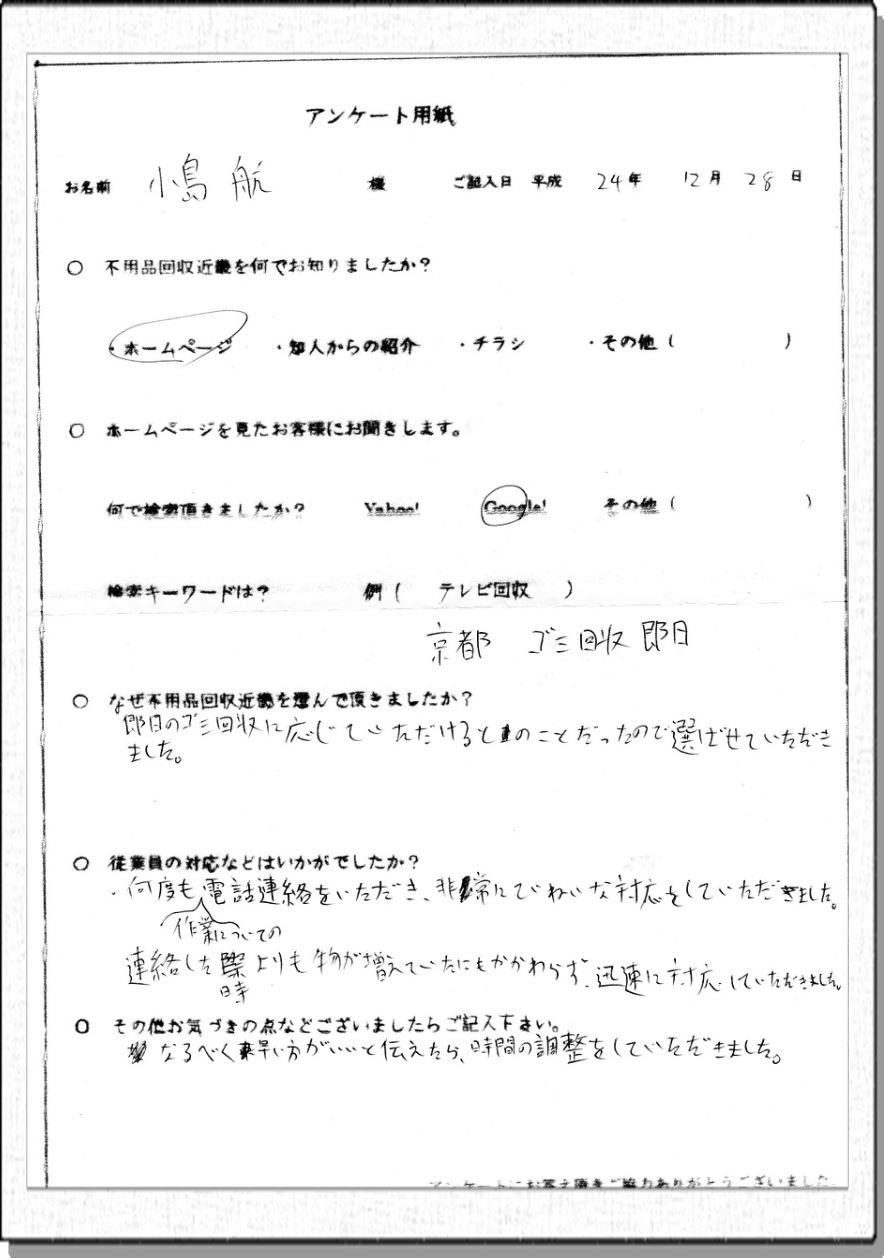 アンケート用紙
お名前 小島 航 様 ご記入日 平成 24年 12月 28日
○ 不用品回収近畿を何でお知りましたか？
・ホームページ ・知人からの紹介 ・チラシ ・その他（ ）
○ ホームページを見たお客様にお聞きします。
何で検索頂きましたか？ Yahoo! Google! その他（ ）
検索キーワードは？ 例（ テレビ回収 ）
京都 ゴミ回収 即日
○ なぜ不用品回収近畿を選んで頂きましたか？
即日のゴミ回収に応じていただけるとのことだったので選ばせていただき
ました。
○ 従業員の対応などはいかがでしたか？
・何度も電話連絡をいただき、非常にていねいな対応をしていただきました。
作業についての
連絡した際よりも物が増えていたにもかかわらず、迅速に対応していただきました。
時
○ その他お気づきの点などございましたらご記入下さい。
なるべく早い方がいいと伝えたら、時間の調整をしていただきました。
アンケートにお答え頂きご協力ありがとうございました。